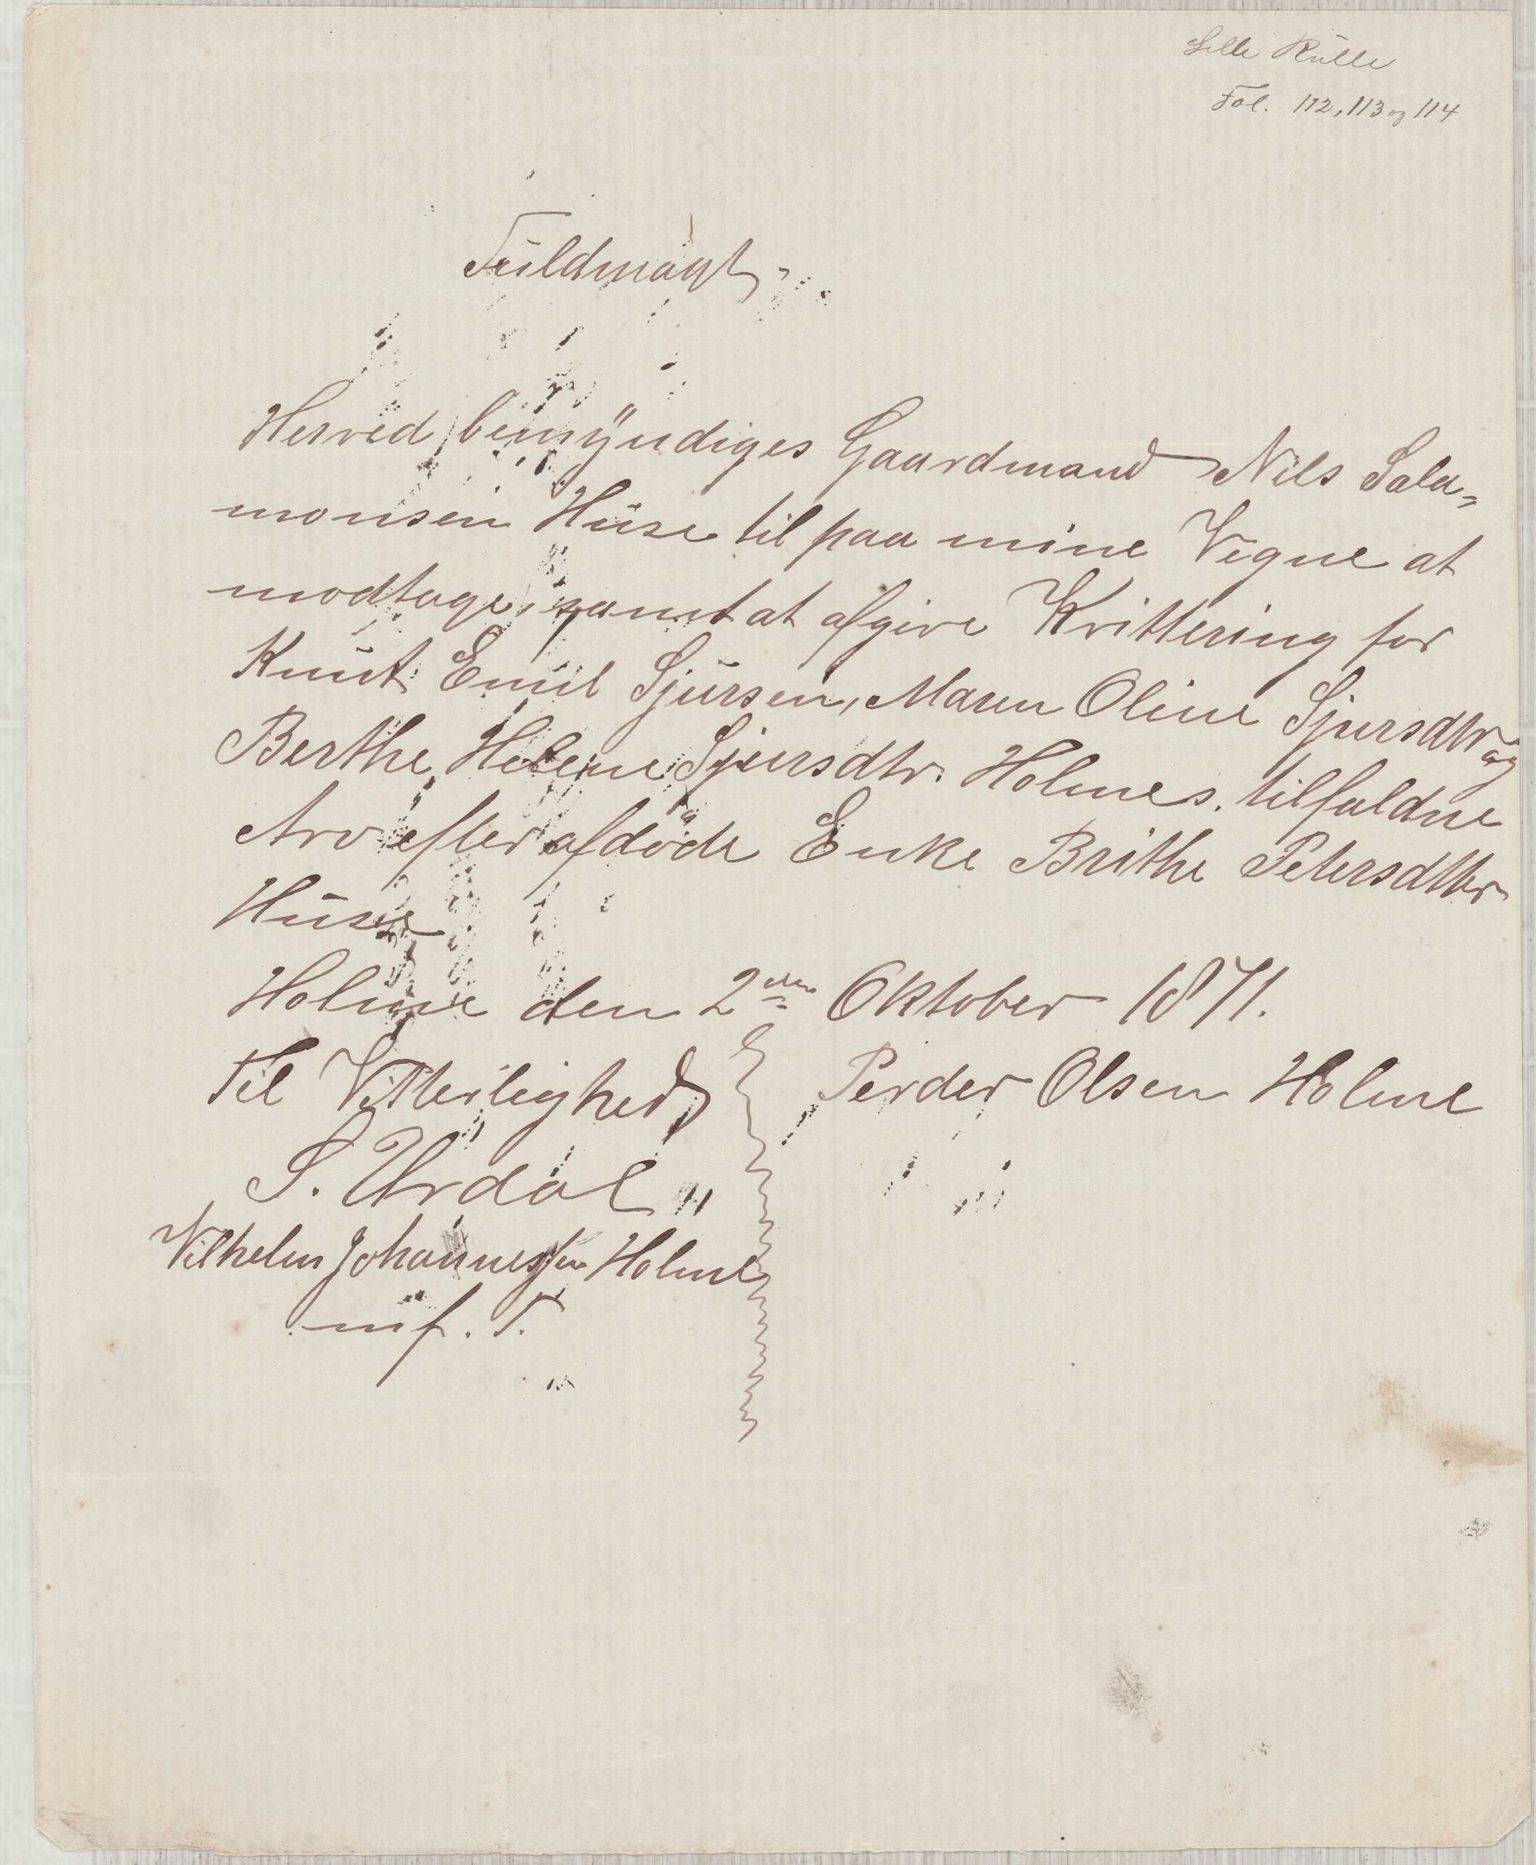 Lille Rulle
Fol. 112, 113 og 114
Fuldmagt
Herved bemyndiges Gaardmand Nils Sala-
monsen Huse til paa mine Vegne at
modtage, samt at afgive Kvittering for
Knut Emil Sjursen, Maren Oline Sjursdtr og
Berthe Helene Sjursdtr. Holmes. tilfaldne
Arv efter afdøde Enke Brithe Petersdttr
Huse
Holme den 2den Oktober 1871.
Til Vitterlighed Perder Olsen Holme
S. Urdal
Vilhelm Johannessen Holme
mf. P.